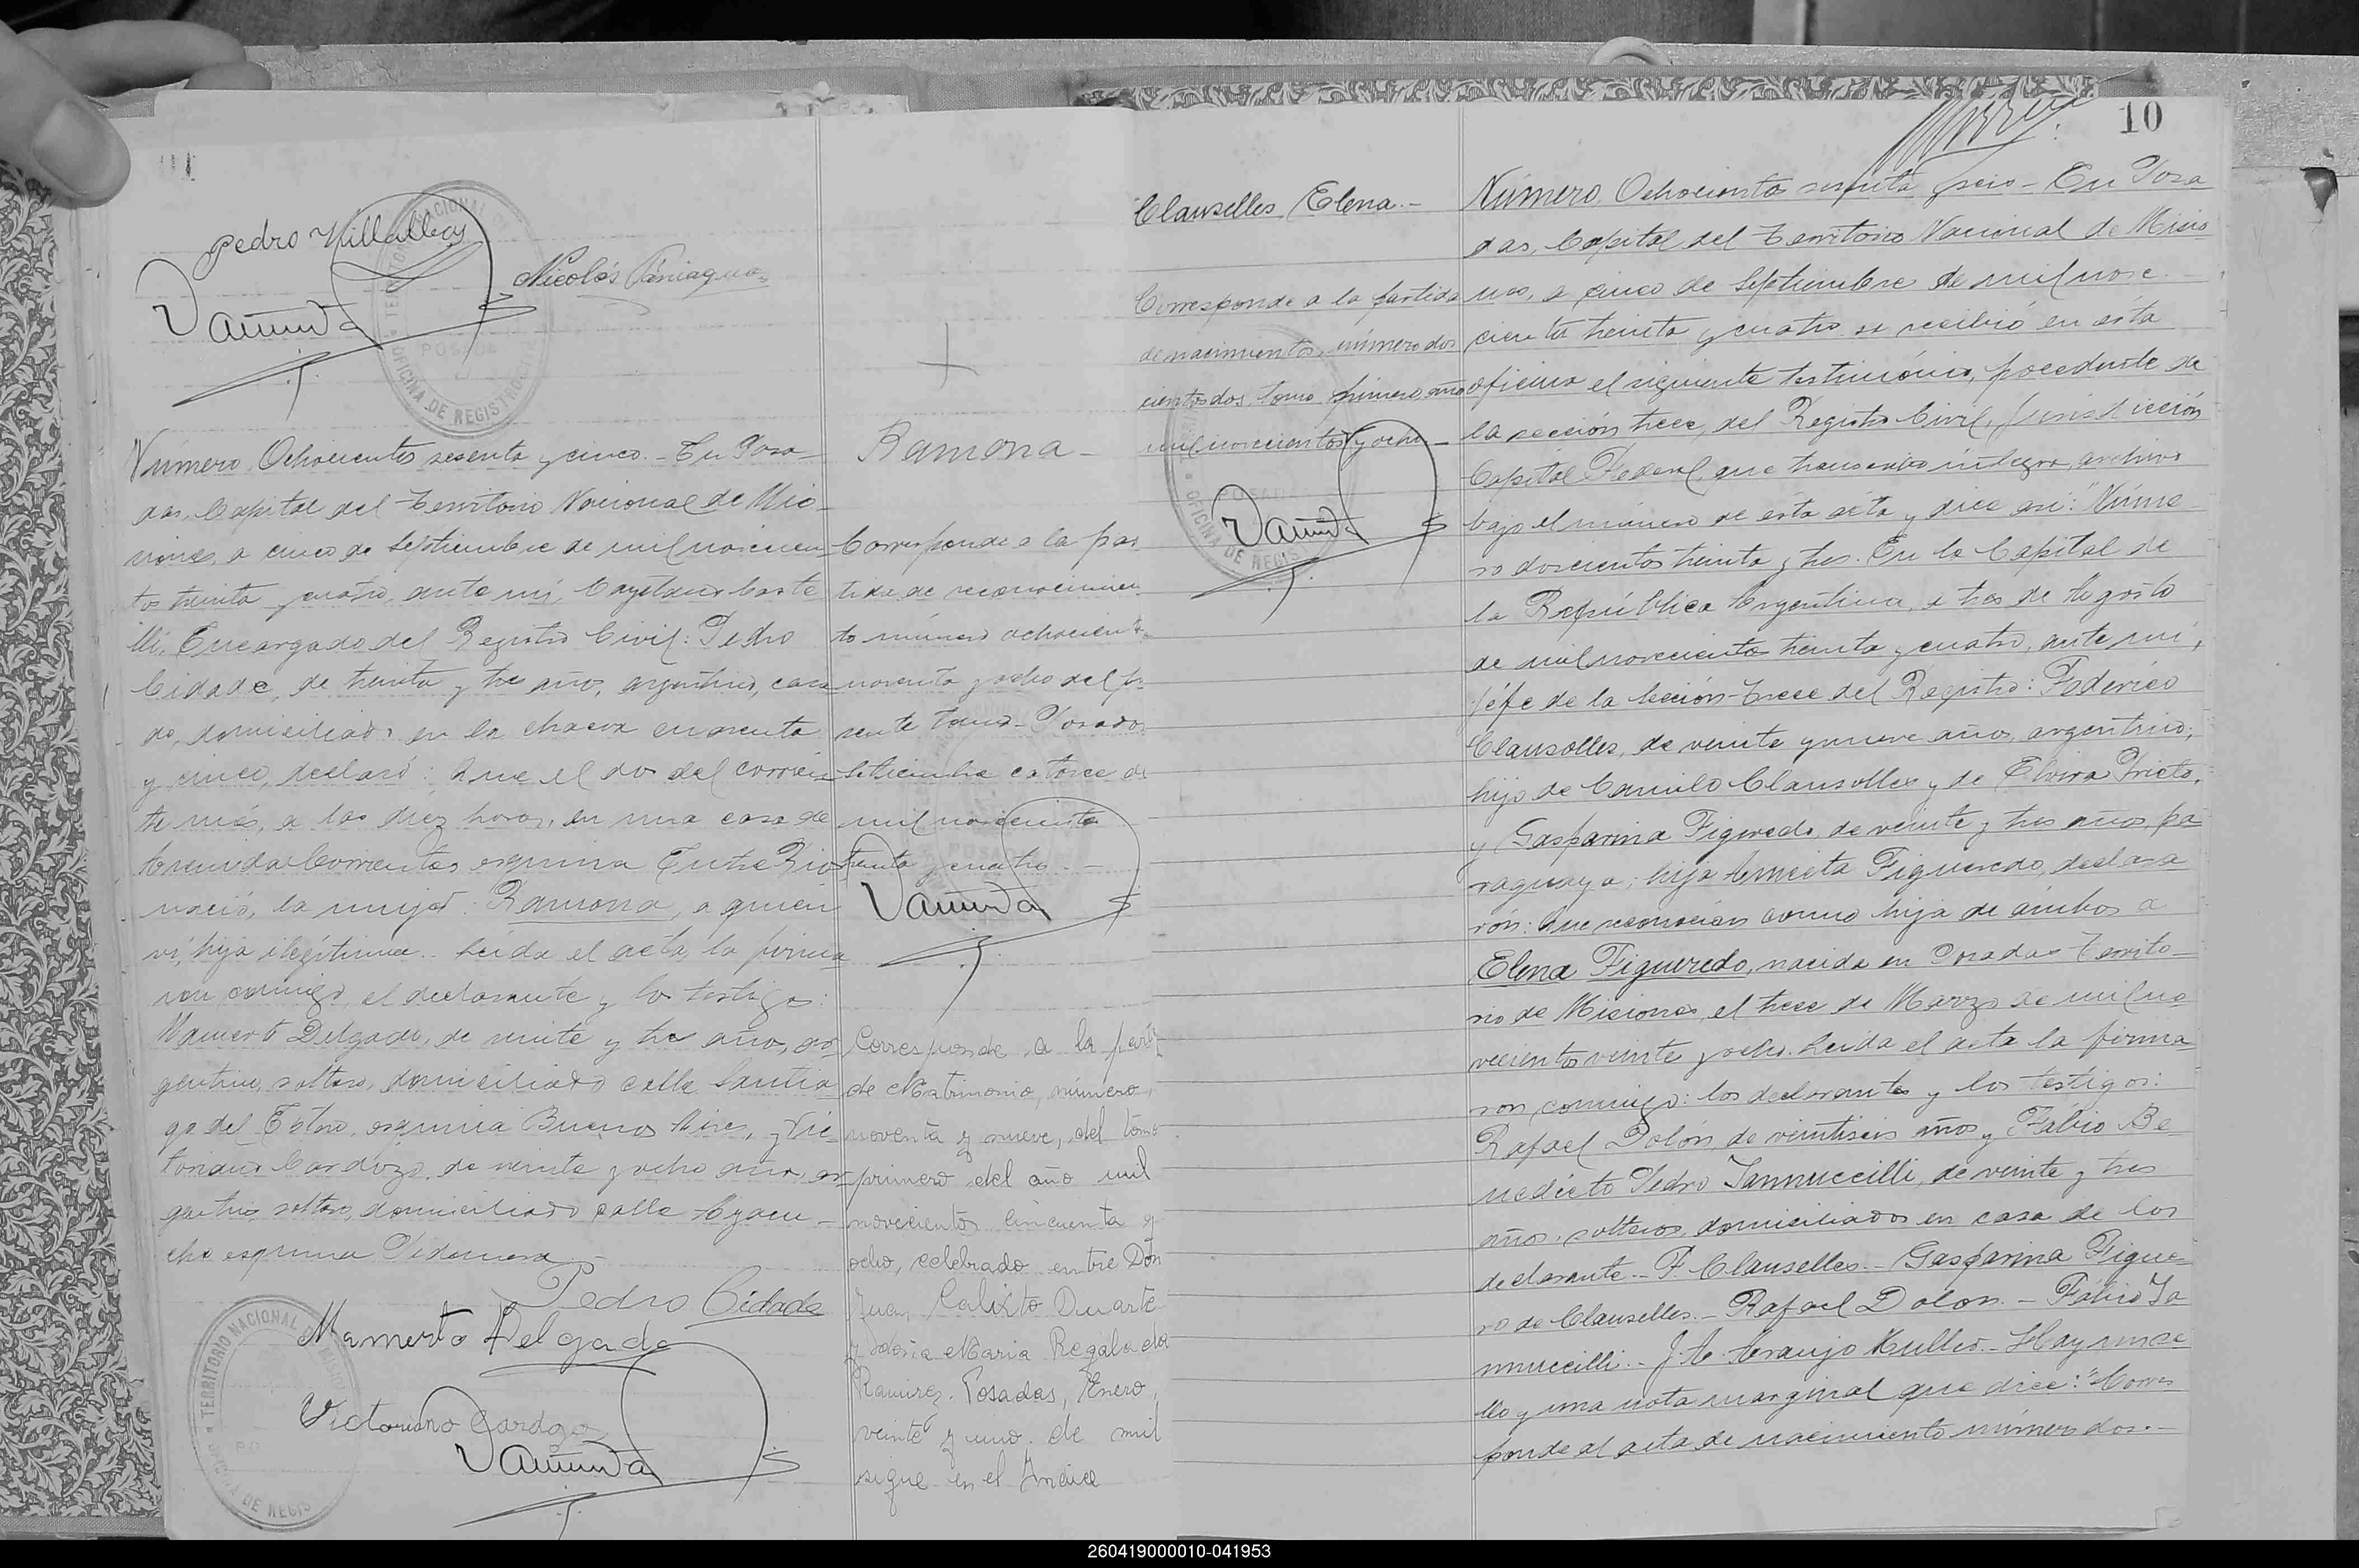 Pedro Villalba
Nicolás Paniagua
TERRITORIO NACIONAL DE
POSADA
OFICINA DE REGISTRO
Número Ochocientos sesenta y cinco.- En Posa-
das, Capital del Territorio Nacional de Mi-
siones, a cinco de Septiembre de mil novecien-
tos treinta y cuatro, ante mí, Cayetano Caste
lli, Encargado del Registro Civil: Pedro
Cidade, de treinta y tres años, argentino, casa
do, domiciliado en la chacra cuarenta
y cinco, declaró: Que el dos del corrien
te mes, a las diez horas, en una casa de
Avenida Corrientes esquina Entre Rios
nació, la mujer: Ramona, a quien
vi, hija ilegítima.- Leida el acta, la firma
ron conmigo, el declarante y los testigos:
Mamerto Delgado, de veinte y tres años, ar
gentino, soltero, domiciliado calle Santia
go del Estero, esquina Buenos Aires, y Vic
toriano Cardozo, de veinte y ocho años, ar
gentino, soltero, domiciliado calle Ayacu-
cho esquina Pedernera.-
Pedro Cidade
Mamerto Delgado
Victoriano Cardozo
TERRITORIO NACIONAL
DE REGIS
Ramona-
Corresponde a la par
tida de reconocimien
to número ochocientos
noventa y ocho del pre
sente tomo.- Posadas
Setiembre catorce de
mil novecientos
treinta y cuatro.-
Corresponde a la part
de Matrimonio, número,
noventa y nueve, del tomo
primero del año mil
novecientos cincuenta y
ocho, celebrado entre Don
Juan Calixto Duarte
y doña Maria Regalada
Ramirez. Posadas, Enero,
veinte y uno de mil
sigue en el Indice
10
Clauselles, Elena.-
Corresponde a la partida
de nacimiento, número dos
cientos dos, tomo primero, año
mil novecientos y ocho-
OFICINA DE REGIS
Número Ochocientos sesenta y seis - En Posa
das, Capital del Territorio Nacional de Misio
nes, a cinco de Septiembre de mil nove-
cientos treinta y cuatro se recibió en esta
oficina el siguiente testimonio, procedente de
la sección trece, del Registro Civil, Jurisdicción
Capital Federal, que transcribo íntegro, archivo
bajo el número de esta acta y dice así: "Núme-
ro doscientos treinta y tres. En la Capital de
la República Argentina, a tres de Agosto
de mil novecientos treinta y cuatro, ante mí,
Jéfe de la Sección Trece del Registro: Federico
Clausolles, de veinte y nueve años, argentino,
hijo de Camilo Clausolles y de Elvira Prieto,
y Gasparina Figueredo, de veinte y tres años, pa
raguaya, hija Aniceta Figueredo, declara
ron: Que reconocían como hija de ámbos a
Elena Figueredo, nacida en Posadas Territo-
rio de Misiones, el trece de Marzo de mil no
vecientos veinte y ocho. Leida el acta la firma
ron conmigo: los declarantes y los testigos:
Rafael Dolón, de veintiseis años y Fábio Be
nedicto Pedro Iannuccilli, de veinte y tres
años, solteros, domiciliados en casa de los
declarante.- F. Clauselles.- Gasparina Figue-
ro de Clauselles.- Rafael Dolon.- Fabio Ia
nnuccilli.- J. A. Araujo Muller.- Hay un se
llo y una nota marginal que dice: "Corres
ponde al acta de nacimiento número dos.-
260419000010-041953